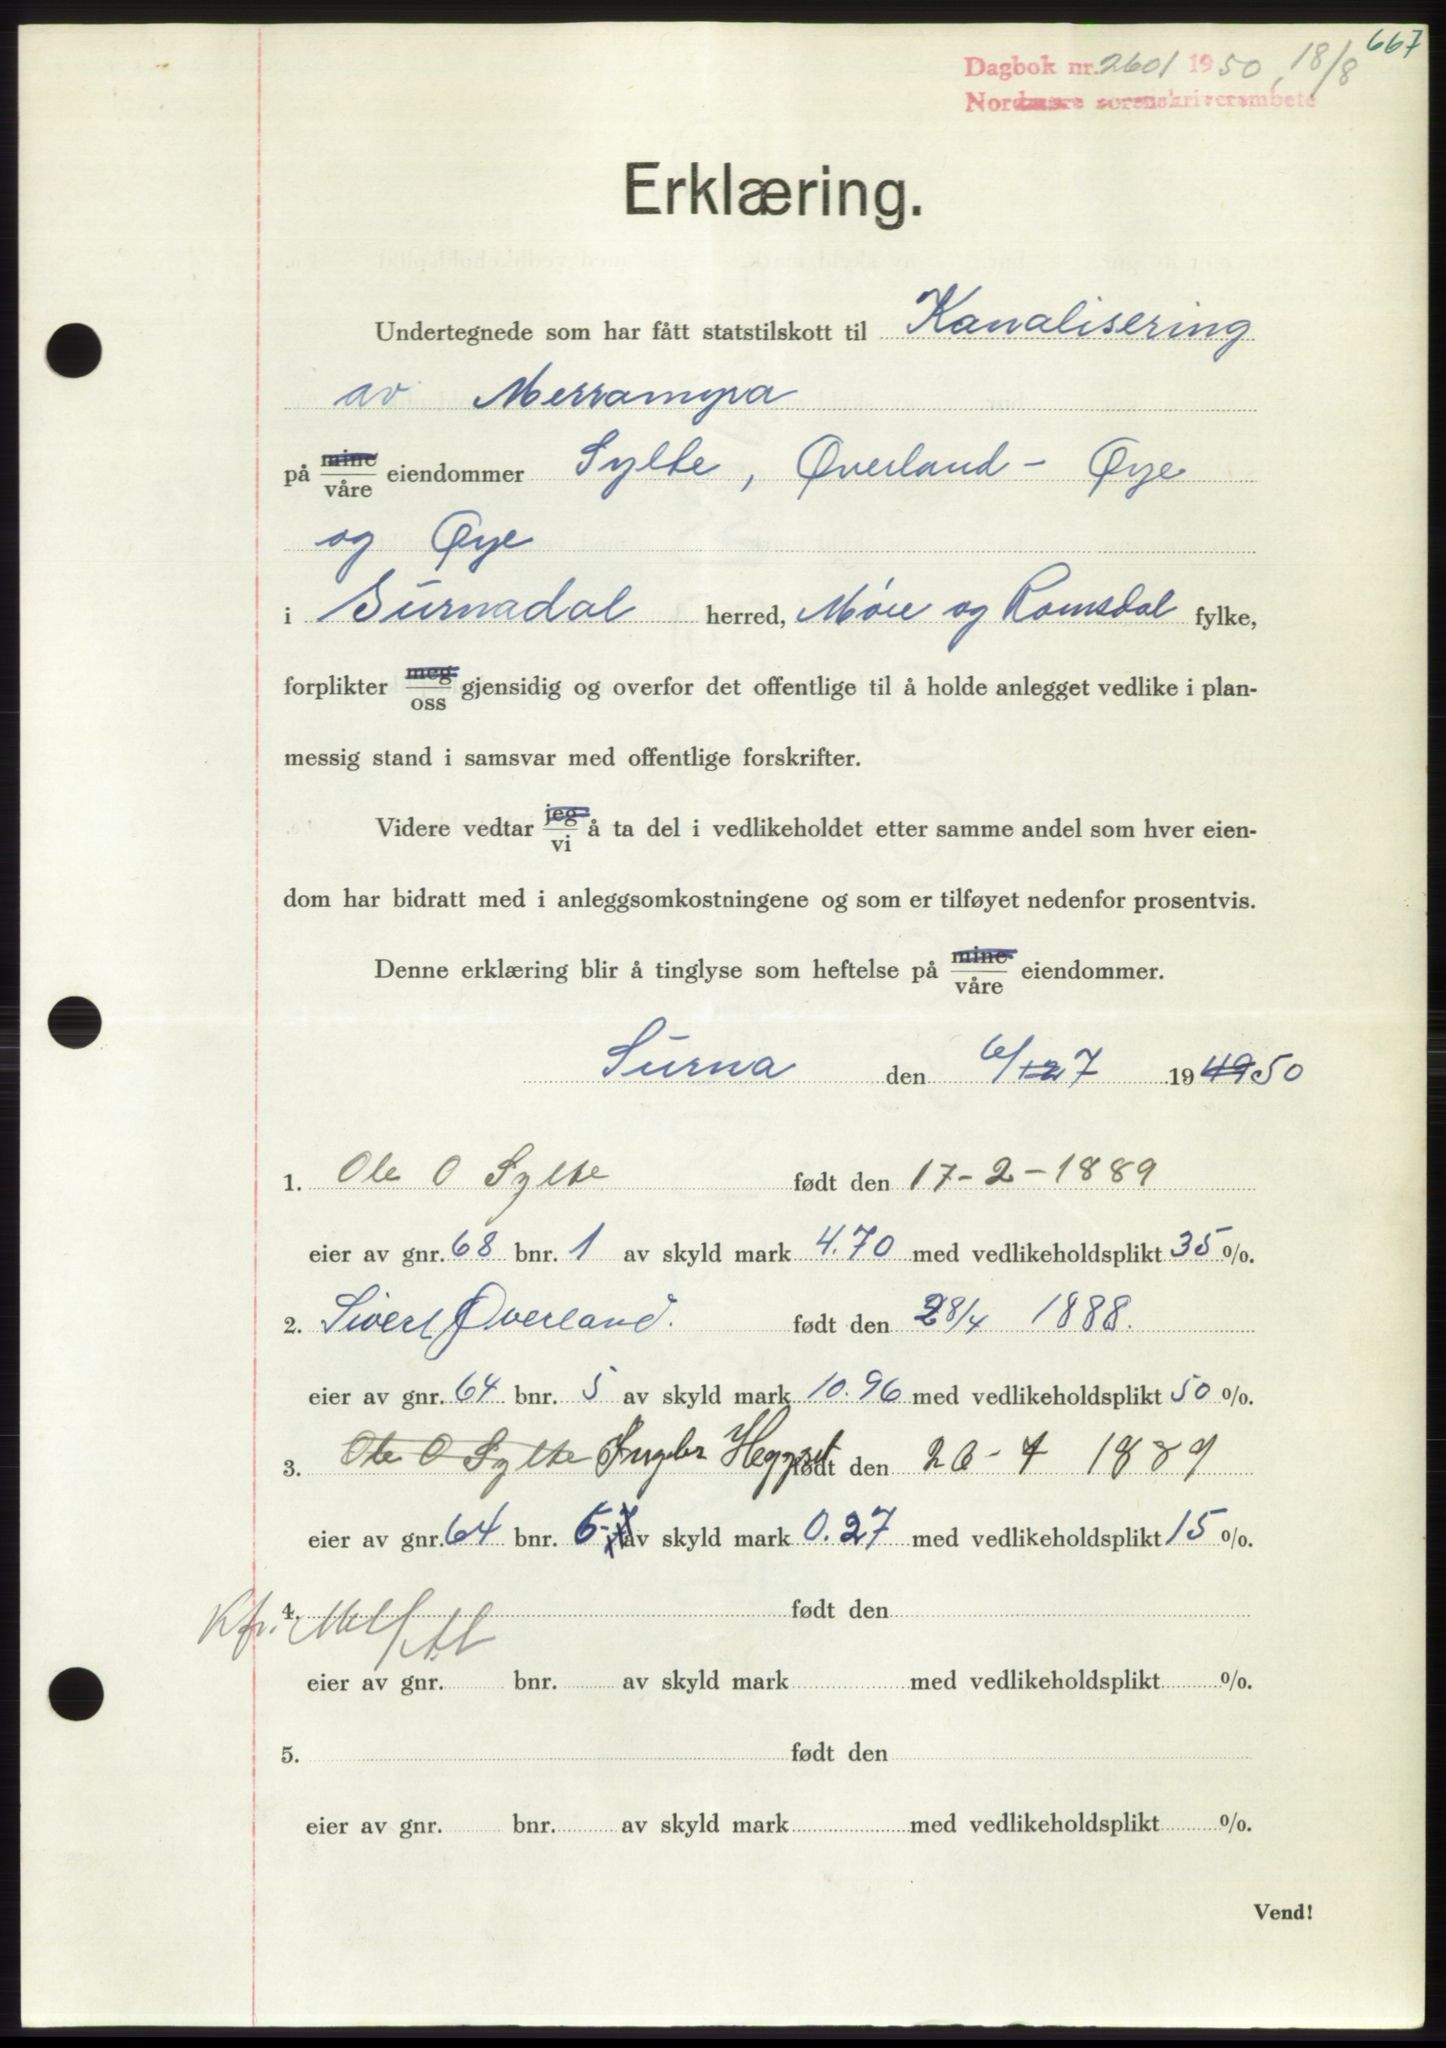 667
Dagbok nr. 2601 1950, 18/8
Nordmøre sorenskriverembete
Erklæring.
Undertegnede som har fått statstilskott til Kanalisering
av Merramyra
på mine/våre eiendommer Sylte, Øverland - Øye
og Øye
i Surnadal herred, Møre og Romsdal fylke,
forplikter meg/oss gjensidig og overfor det offentlige til å holde anlegget vedlike i plan-
messig stand i samsvar med offentlige forskrifter.
Videre vedtar jeg/vi å ta del i vedlikeholdet etter samme andel som hver eien-
dom har bidratt med i anleggsomkostningene og som er tilføyet nedenfor prosentvis.
Denne erklæring blir å tinglyse som heftelse på mine/våre eiendommer.
Surna den 6/12 7 1949 50
1. Ole O Sylte født den 17-2-1889
eier av gnr. 68 bnr. 1 av skyld mark 4.70 med vedlikeholdsplikt 35 %.
2. Sivert Øverland. født den 28/4 1888.
eier av gnr. 64 bnr. 5 av skyld mark 10.96 med vedlikeholdsplikt 50 %.
3. Ole O Sylte Ingebr Heggset født den 26-4 1889
eier av gnr. 64 bnr. 6 av skyld mark 0.27 med vedlikeholdsplikt 15 %.
4. født den
Kfr.
eier av gnr. bnr. av skyld mark med vedlikeholdsplikt %.
5. født den
eier av gnr. bnr. av skyld mark med vedlikeholdsplikt %.
Vend!